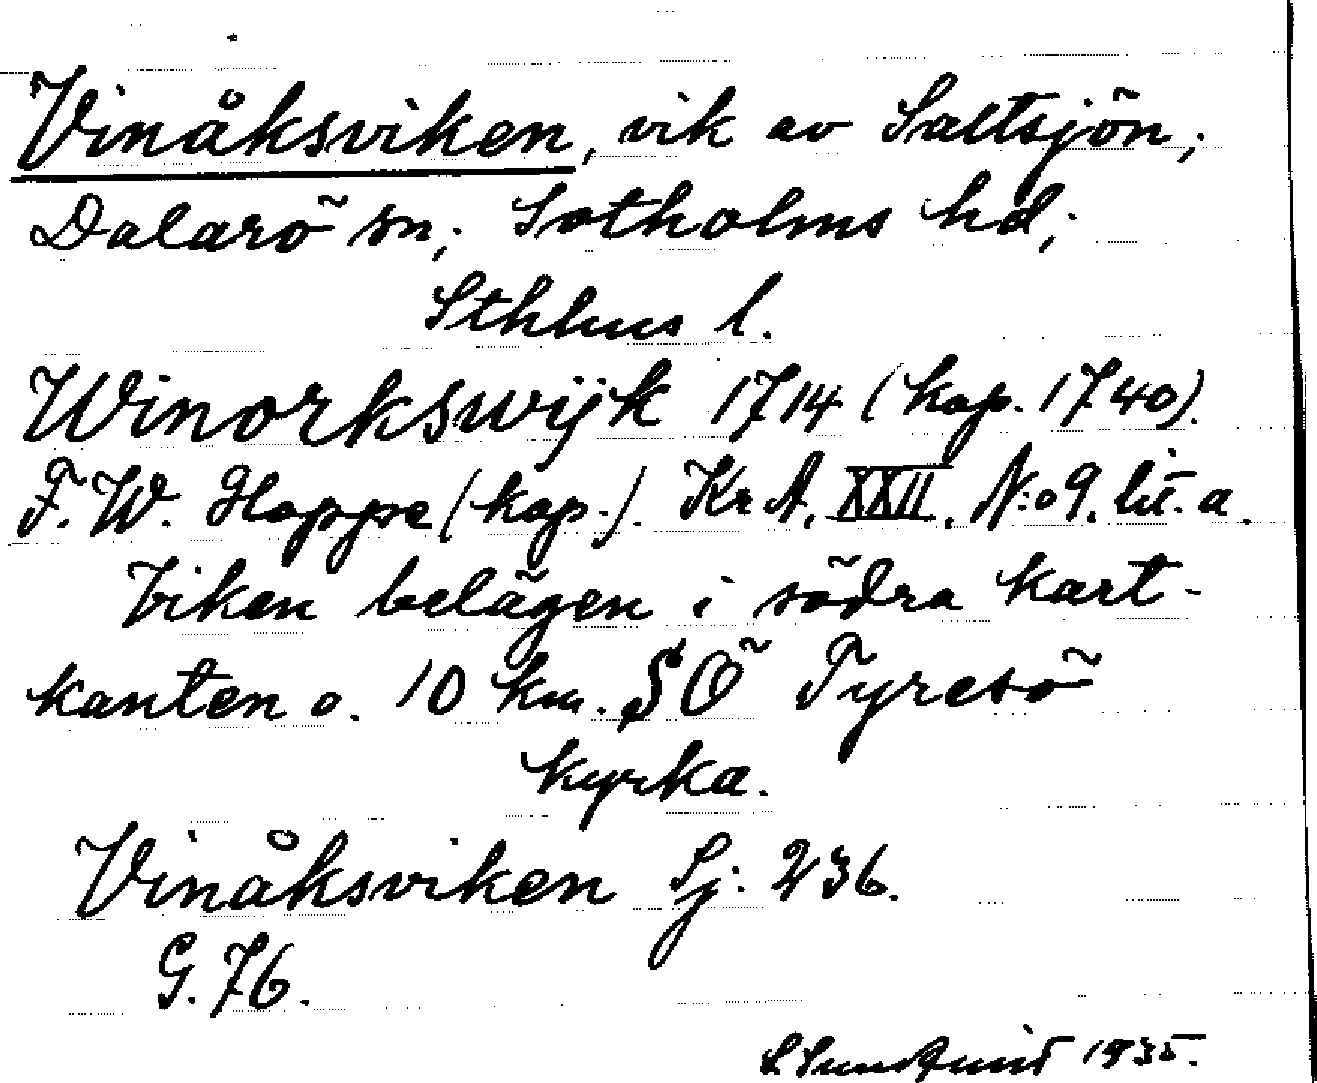 Vinåksviken, vik av Saltsjön;
Dalarö sn; Sotholms hd;
Sthlms l.
Winorkswijk 1714 (kop. 1740).
F. W. Hoppe (kop.). Kr A. XXII. N:o 9. lit. a.
Viken belägen i södra kart-
kanten o. 10 km. SÖ Tyresö
kyrka.
Vinåksviken Sj. 236.
G. 76.
S Sundquist 1935.